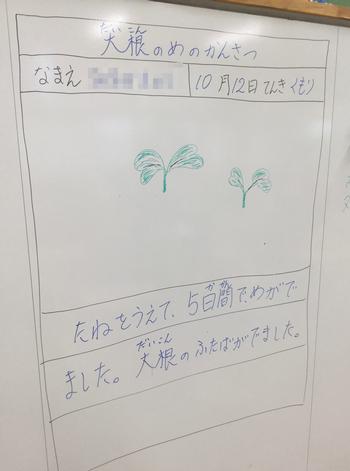 大根のめのかんさつ
なまえ 10月12日 てんき くもり
か かん
たねをうえて、5日間で、めがで
だいこん
ました。大根のふたばがでました。